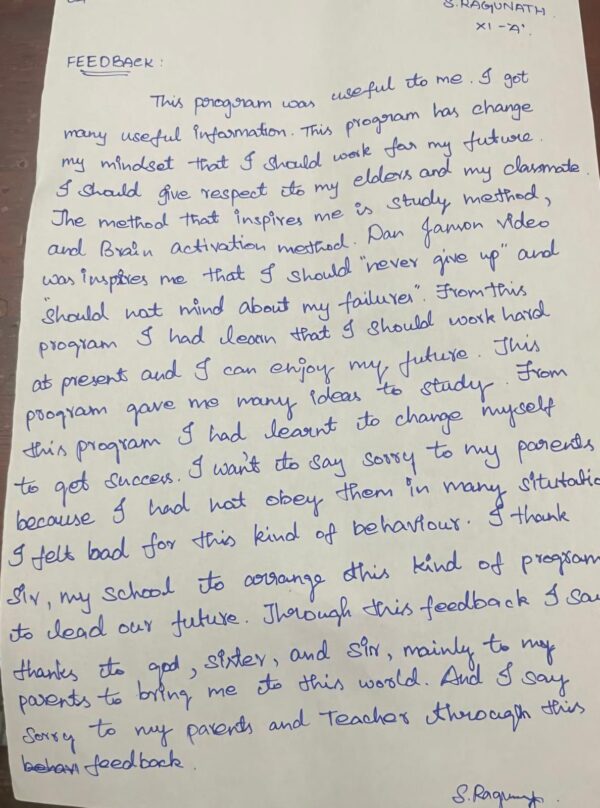 S. RAGUNATH
XI - 'A'.
FEEDBACK :
This program was useful to me. I got
many useful information. This program has change
my mindset that I should work for my future.
I should give respect to my elders and my classmate.
The method that inspires me is study method,
and Brain activation method. Dan Janson video
was inspires me that I should "never give up" and
"should not mind about my failures". From this
program I had learn that I should work hard
at present and I can enjoy my future. This
program gave me many ideas to study. From
this program I had learnt to change myself
to get success. I want to say sorry to my parents
because I had not obey them in many
I felt bad for this kind of behaviour. I thank
sir, my school to arrange this kind of program
to lead our future. Through this feedback I say
thanks to god, sister, and sir, mainly to my
parents to bring me to this world. And I say
sorry to my parents and Teacher through this
feedback.
S. Ragunath